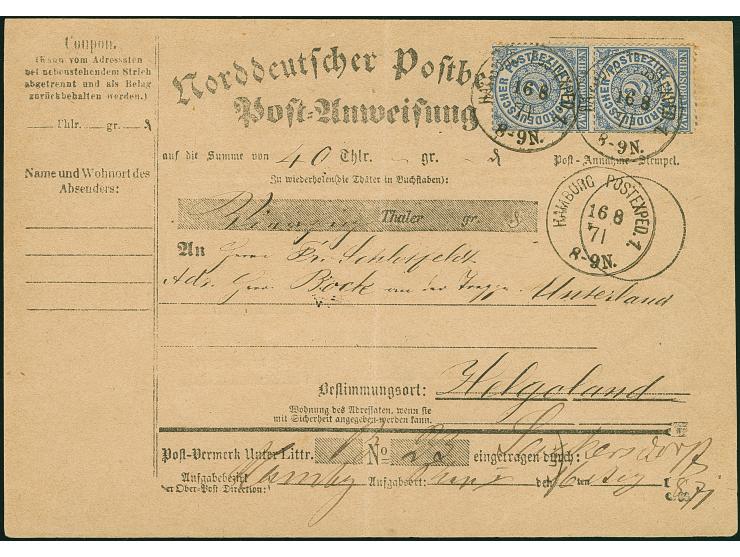 Coupon.
(Kann vom Adressaten
bei nebenstehendem Strich
abgetrennt und als Belag
zurückbehalten werden.)
Thlr. gr.
Name und Wohnort des
Absenders:
Norddeutscher Postbe
Post-Anweisung
NORDDEUTSCHER POSTBEZIRK
NORDDEUTSCHER POSTBEZIRK
16 8
71
8-9N.
16 8
71
8-9N.
auf die Summe von 40 Thlr. gr.
Post-Annahme-Stempel.
Zu wiederholen (die Thaler in Buchstaben):
Vierzig Thaler gr.
HAMBURG POSTEXPED. 1.
16 8
71
8-9N.
An Herrn Fr. Schlesfeldt
Adr. Herr Bock an der Treppe Unterland
Bestimmungsort: Helgoland
Wohnung des Adressaten, wenn sie
mit Sicherheit angegeben werden kann.
Post-Vermerk Unter Littr. No eingetragen durch:
Aufgabebezirk Hamburg Aufgabsort: den ten
er Ober-Post Direction: